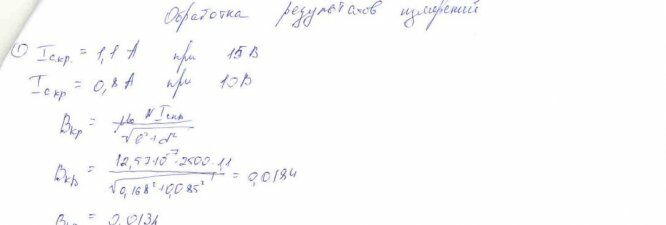 Обработка результатов измерений
① Iскр. = 1,1 А при 15 В
Iскр = 0,8 А при 10 В
Bкр = μ₀ N Iскр / √(l² + d²)
Bкр = 12,57·10⁻⁷·2500·1,1 / √(0,168² + 0,085²) = 0,0184
Bкр = 0,0134